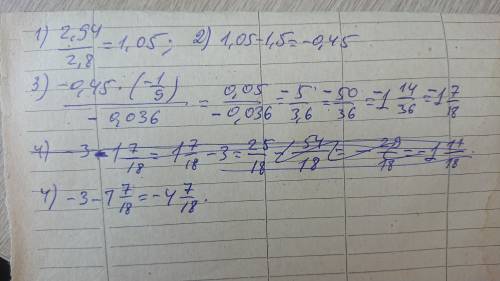 1) 2,94/2,8 = 1,05; 2) 1,05-1,5=-0,45
3) -0,45·(-1/9)/-0,036 = 0,05/-0,036 = -5/3,6 = -50/36 = -1 14/36 = -1 7/18
4) -3-1 7/18 = 1 7/18 - 3 = 25/18 - 54/18 = -29/18 = -1 11/18.
4) -3-1 7/18 = -4 7/18.